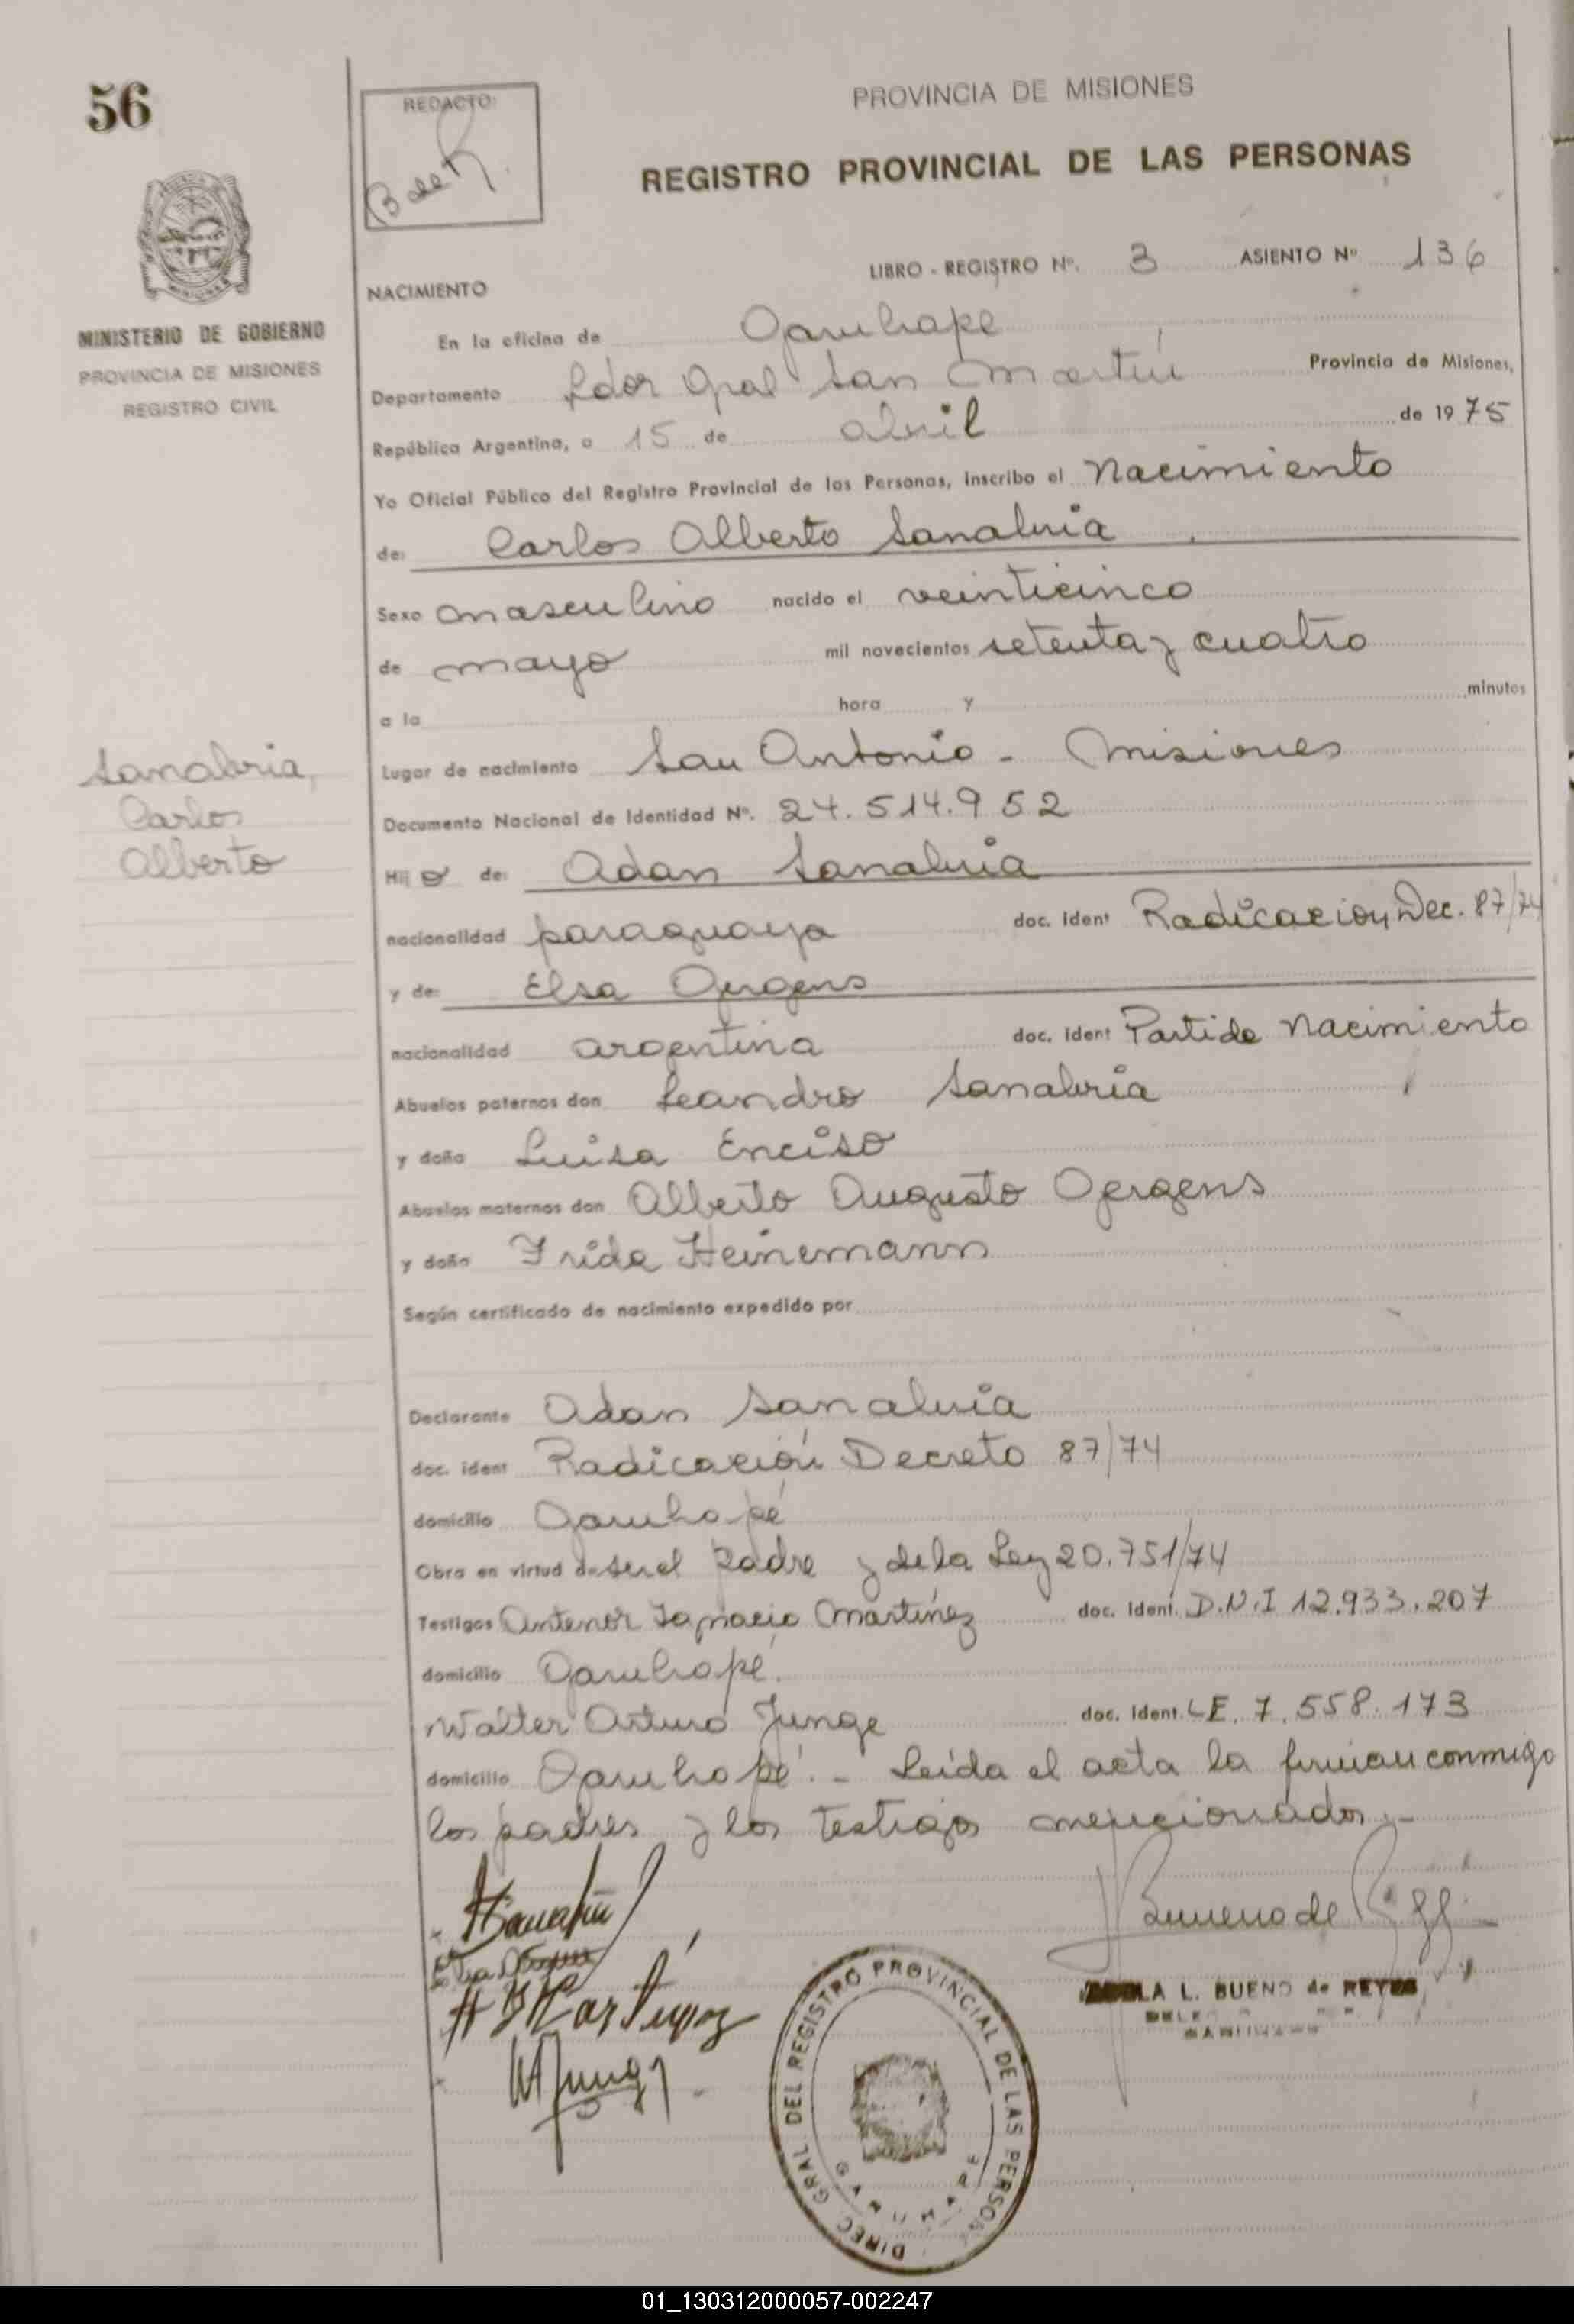 56
REDACTO:
B de R.
PROVINCIA DE MISIONES
REGISTRO PROVINCIAL DE LAS PERSONAS
MINISTERIO DE GOBIERNO
PROVINCIA DE MISIONES
REGISTRO CIVIL
LIBRO - REGISTRO Nº. 3 ASIENTO Nº 136
NACIMIENTO
En la oficina de Garuhape
Departamento Ldor Gral San Martín Provincia de Misiones,
República Argentina, a 15 de abril de 1975
Yo Oficial Público del Registro Provincial de las Personas, inscribo el Nacimiento
de: Carlos Alberto Sanabria
Sexo masculino nacido el veinticinco
de mayo mil novecientos setenta y cuatro
a la hora y minutos
Sanabria,
Carlos
Alberto
Lugar de nacimiento San Antonio - Misiones
Documento Nacional de Identidad Nº. 24.514.952
Hijo de: Adan Sanabria
nacionalidad paraguaya doc. ident Radicacion Dec. 87/74
y de: Elsa Oergens
nacionalidad argentina doc. ident Partida Nacimiento
Abuelos paternos don Leandro Sanabria
y doña Luisa Enciso
Abuelos maternos don Alberto Augusto Oergens
y doña Frida Heinemann
Según certificado de nacimiento expedido por
Declarante Adan Sanabria
doc. ident Radicación Decreto 87/74
domicilio Garuhapé
Obra en virtud de ser el padre y de la Ley 20.751/74
Testigos Antenor Ignacio Martínez doc. ident. D.N.I 12.933.207
domicilio Garuhapé.
Walter Arturo Junge doc. ident. LE. 7.558.173
domicilio Garuhapé. - Leída el acta la firman conmigo
los padres y los testigos mencionados.-
ASanabria
Elsa
A I Martinez
WAJunge
Bueno de
L. BUENO de REYES
GARUHAPE
DIREC. GRAL. DEL REGISTRO PROVINCIAL DE LAS PERSONAS
GARUHAPE
01_130312000057-002247